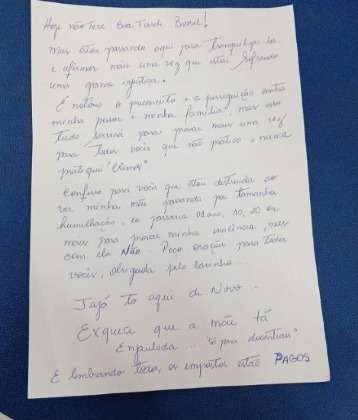 Hoje não teve Boa Tarde Brasil!
Mas estou passando aqui para tranquiliza-los
e afirmar mais uma vez que estou sofrendo
uma grande injustiça.
É notório o preconceito e a perseguição contra
minha pessoa e minha família, mas isso
tudo servirá para provar mais uma vez
para todos vocês que não pratico e nunca
pratiquei "Crimes"
Confesso para vocês que estou destruída ao
ver minha mãe passando por tamanha
humilhação, eu passaria 01 ano, 10, 20 ou
mais para provar minha inocência, mas
com ela Não. Peço oração para todos
vocês, obrigada pelo carinho...
Jajá to aqui de Novo...
Esquece que a mãe tá
Enjaulada... "é pra
E lembrando todos os impostos estão PAGOS